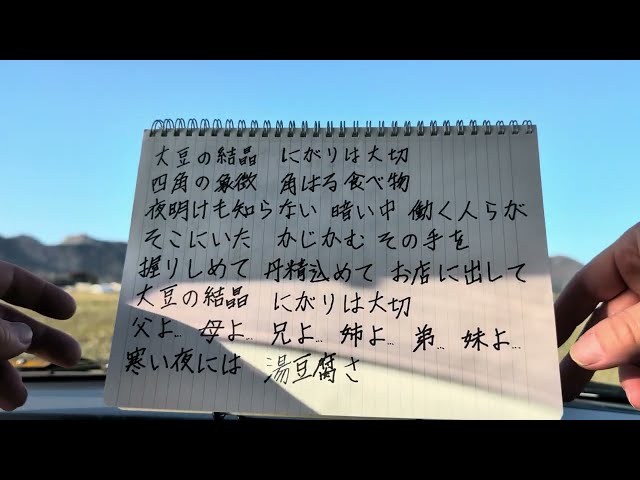 大豆の結晶 にがりは大切
四角の象徴 角はる食べ物
夜明けも知らない 暗い中 働く人らが
そこにいた かじかむ その手を
握りしめて 丹精込めて お店に出して
大豆の結晶 にがりは大切
父よ… 母よ… 兄よ… 姉よ… 弟… 妹よ…
寒い夜には 湯豆腐さ